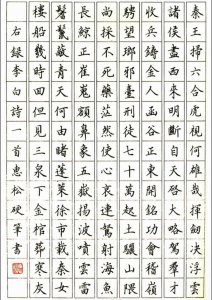 秦王掃六合虎視何雄哉揮劍決浮雲
諸侯盡西來明斷自天啟大略駕羣才
收兵鑄金人函谷正東開銘功會稽嶺
騁望琅邪臺刑徒七十萬起土驪山隈
尚採不死藥茫然使心哀連弩射海魚
長鯨正崔嵬額鼻象五嶽揚波噴雲雷
鬐鬣蔽青天何由睹蓬萊徐市載秦女
樓船幾時回但見三泉下金棺葬寒灰
右録李白詩一首惠松硬筆書